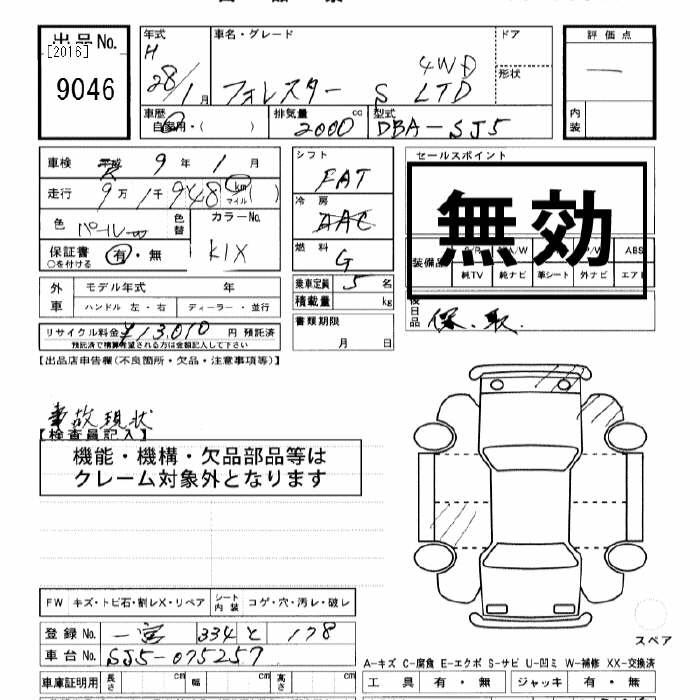 出品No.
[2016]
9046
年式
H
28/1月
車名・グレード
フォレスター S 4WD LTD
ドア
形状
評価点
内装
車歴
自家用・( )
排気量
2000 cc
型式
DBA-SJ5
車検
平成 9年 1月
走行
9万1千948 km マイル ( )
色
パール
色替
カラーNo.
K1X
保証書
○を付ける
有・無
シフト
FAT
冷房
AAC
燃料
G
乗車定員 5名
積載量 kg
書類期限
月 日
セールスポイント
無効
装備品
ABS
純TV 純ナビ 革シート 外ナビ エアB
後日品
保.取.
外車
モデル年式 年
ハンドル 左・右
ディーラー・並行
リサイクル料金 ¥13,010 円 預託済
預託済で積算希望される方は金額記入して下さい
【出品店申告欄(不良箇所・欠品・注意事項等)】
事故現状
【検査員記入】
機能・機構・欠品部品等は
クレーム対象外となります
FW キズ・トビ石・割レX・リペア
シート内装 コゲ・穴・汚レ・破レ
登録No. 一宮 334 と 178
車台No. SJ5-075257
スペア
A-キズ C-腐食 E-エクボ S-サビ U-凹ミ W-補修 XX-交換済
車庫証明用 長さ cm 幅 cm 高さ cm
工具 有・無 ジャッキ 有・無